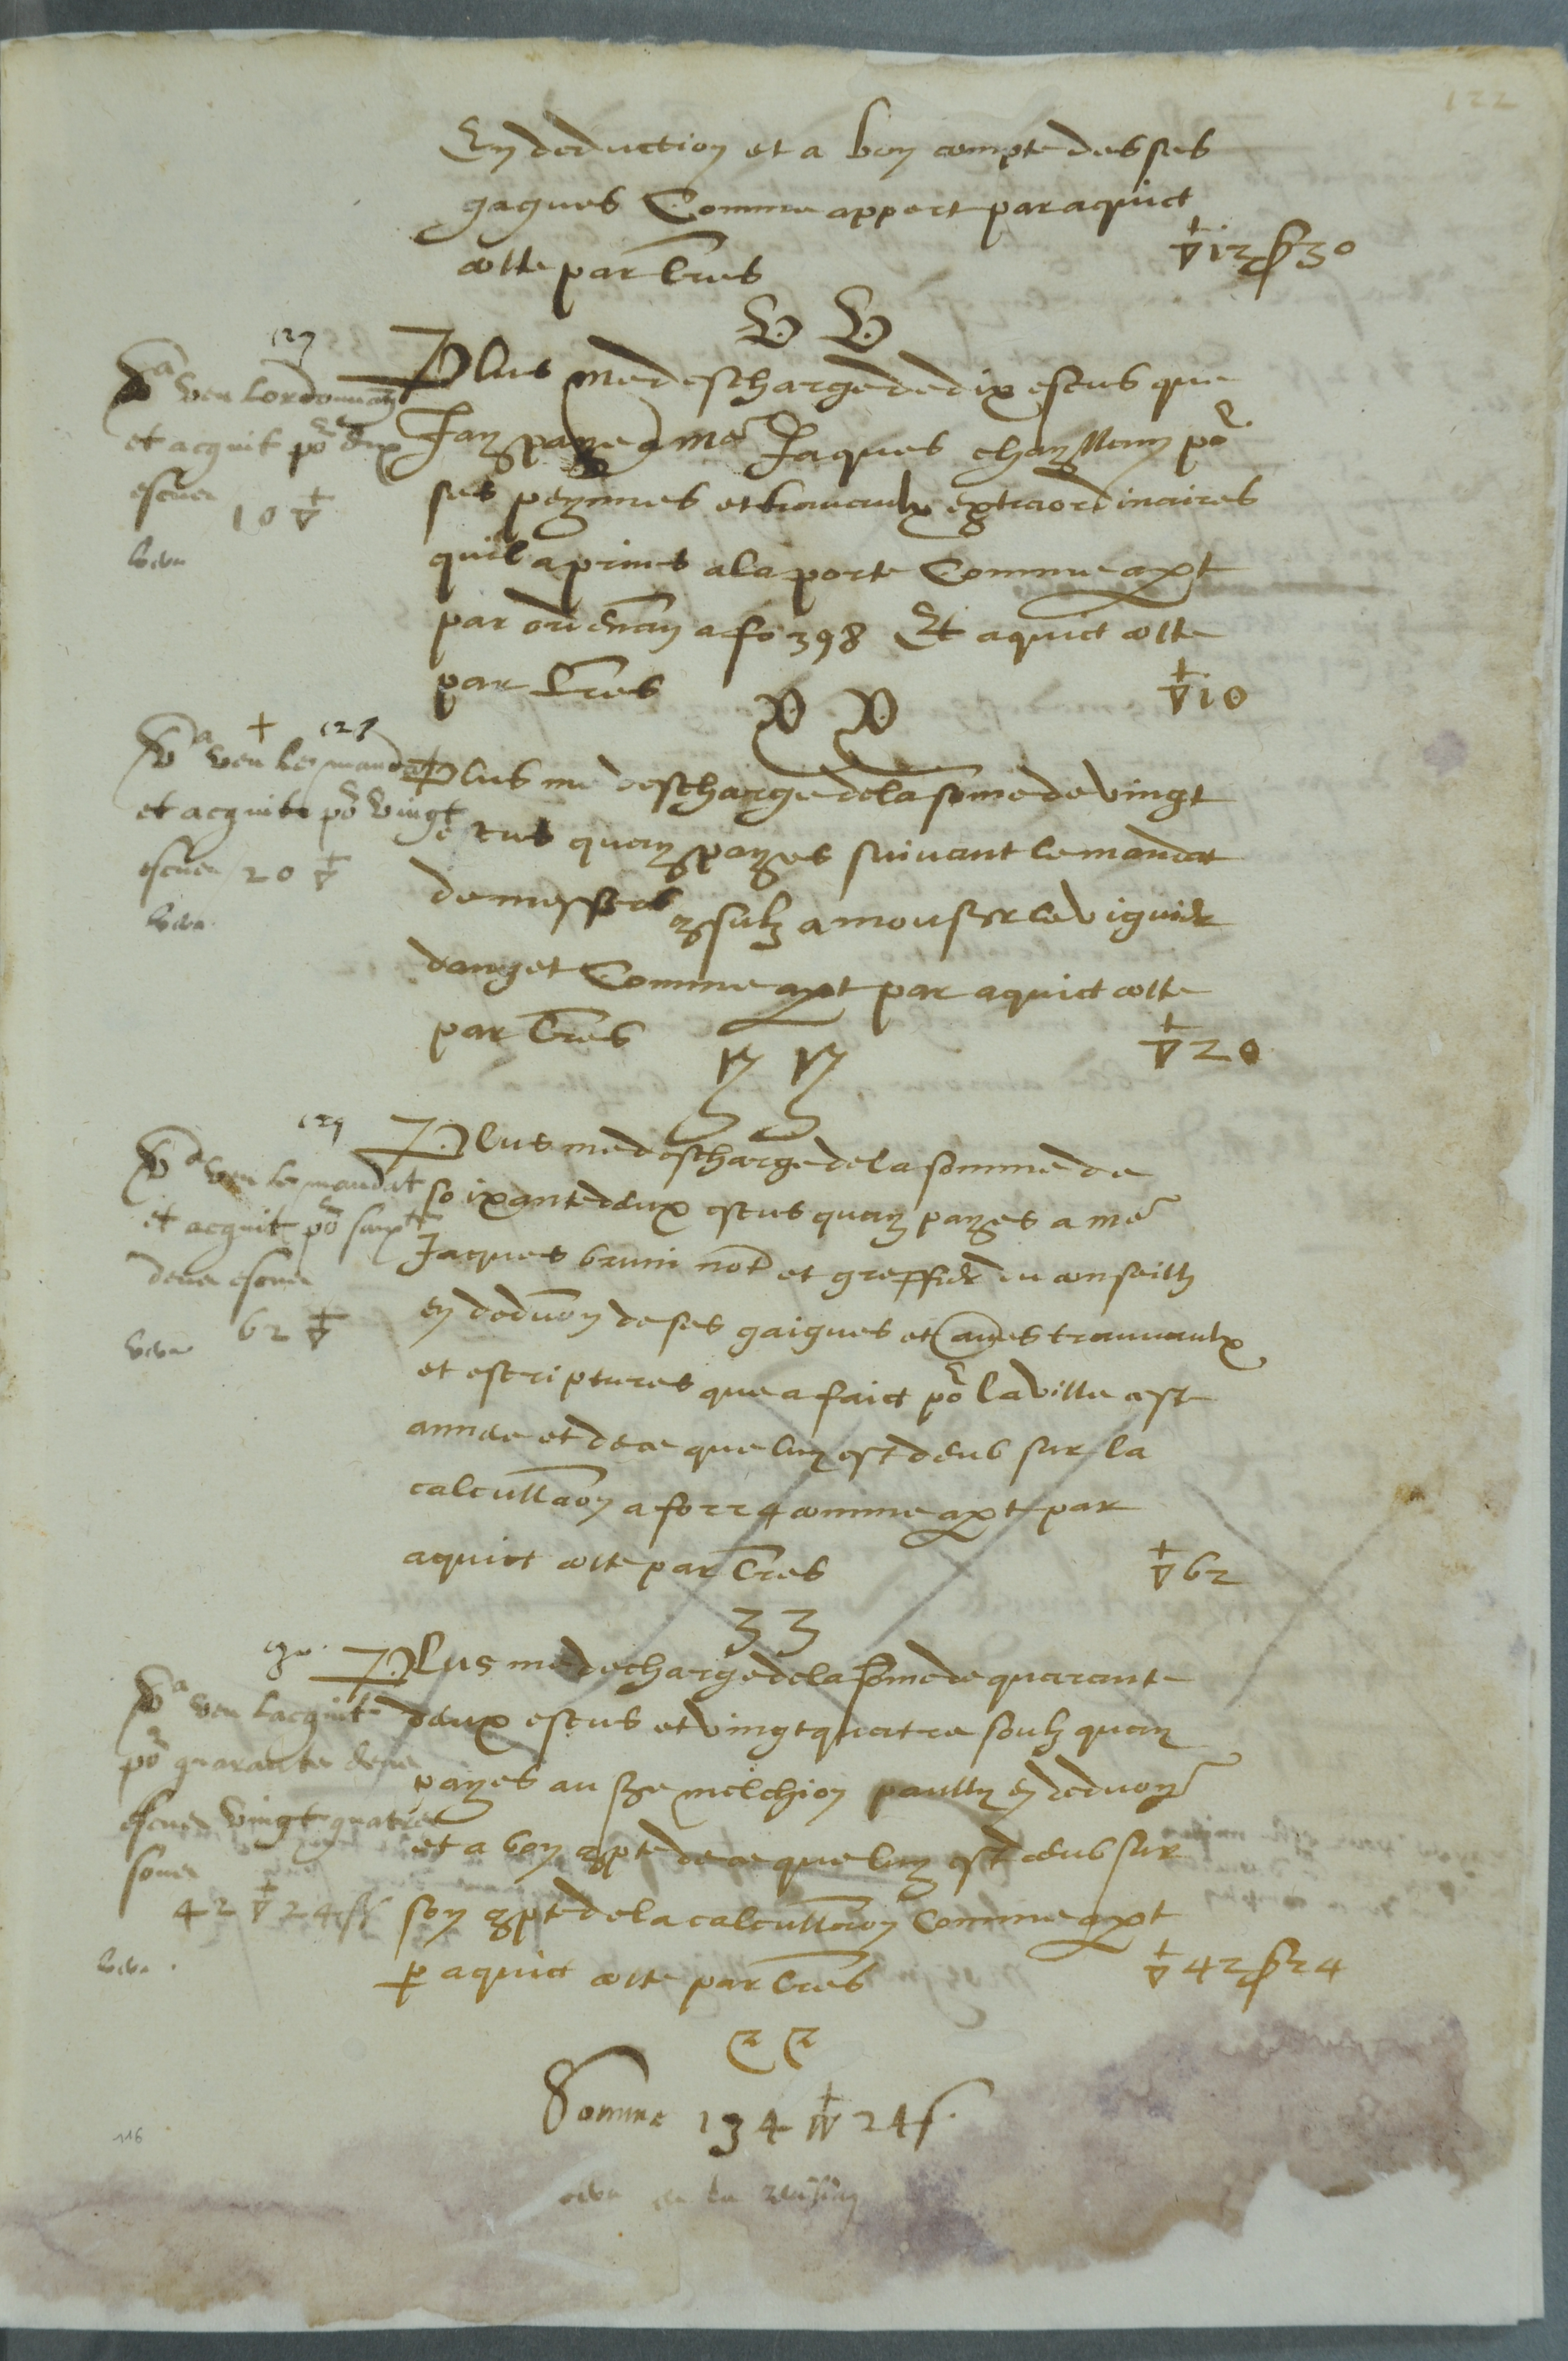 122
En deduction et a bon compte des ses
gagues Comme appert par aquict
cotte par lres
▽12 ſ 30
VV
127
Va veu lordonnan
et acquit po dix
escus
10 ▽
Plus me descharge de dix escus que
Jay paye a me Jaques chayllony po
ses peynnes et travaulx extraordinaires
quil a prins a la porte Comme apt
par ordenan a fo 398 Et aquict cotte
par lres
▽10
XX
128
Va veu le mandat
et acquit po vingt
escus 20 ▽
Plus me descharge de la some de vingt
escus quay payes suivant le mandat
de messrs consulz a monsr le viguier
Comme apt par aquict cotte
par lres
▽20
YY
129
Va veu le mandat
et acquit po soixte
deux escus
62 ▽
Plus me descharge de la somme de
soixante deux escus quay payes a me
Jaques bruni not et greffier du conseilh
en deduon de ses gaigues et autres travaulx
et escriptures que a faict po la ville cest
annee et de ce que luy est deub sur la
calcullaon a fo 224 comme apt par
aquict cotte par lres
▽62
ZZ
130
Va veu lacquit
po quarante deux
escus vingt quatre
souz
42 ▽ 24 ſ
Plus me decharge de la some de quarante
deux escus et vingt quatre soulz quay
payes au sre melchion paully en deduon
et a bon compte de ce que luy est deub sur
son compte de la calcullaon Comme apt
p aquict cotte par lres
▽42 ſ 24
Somme 134 ▽ 24 ſ.
116